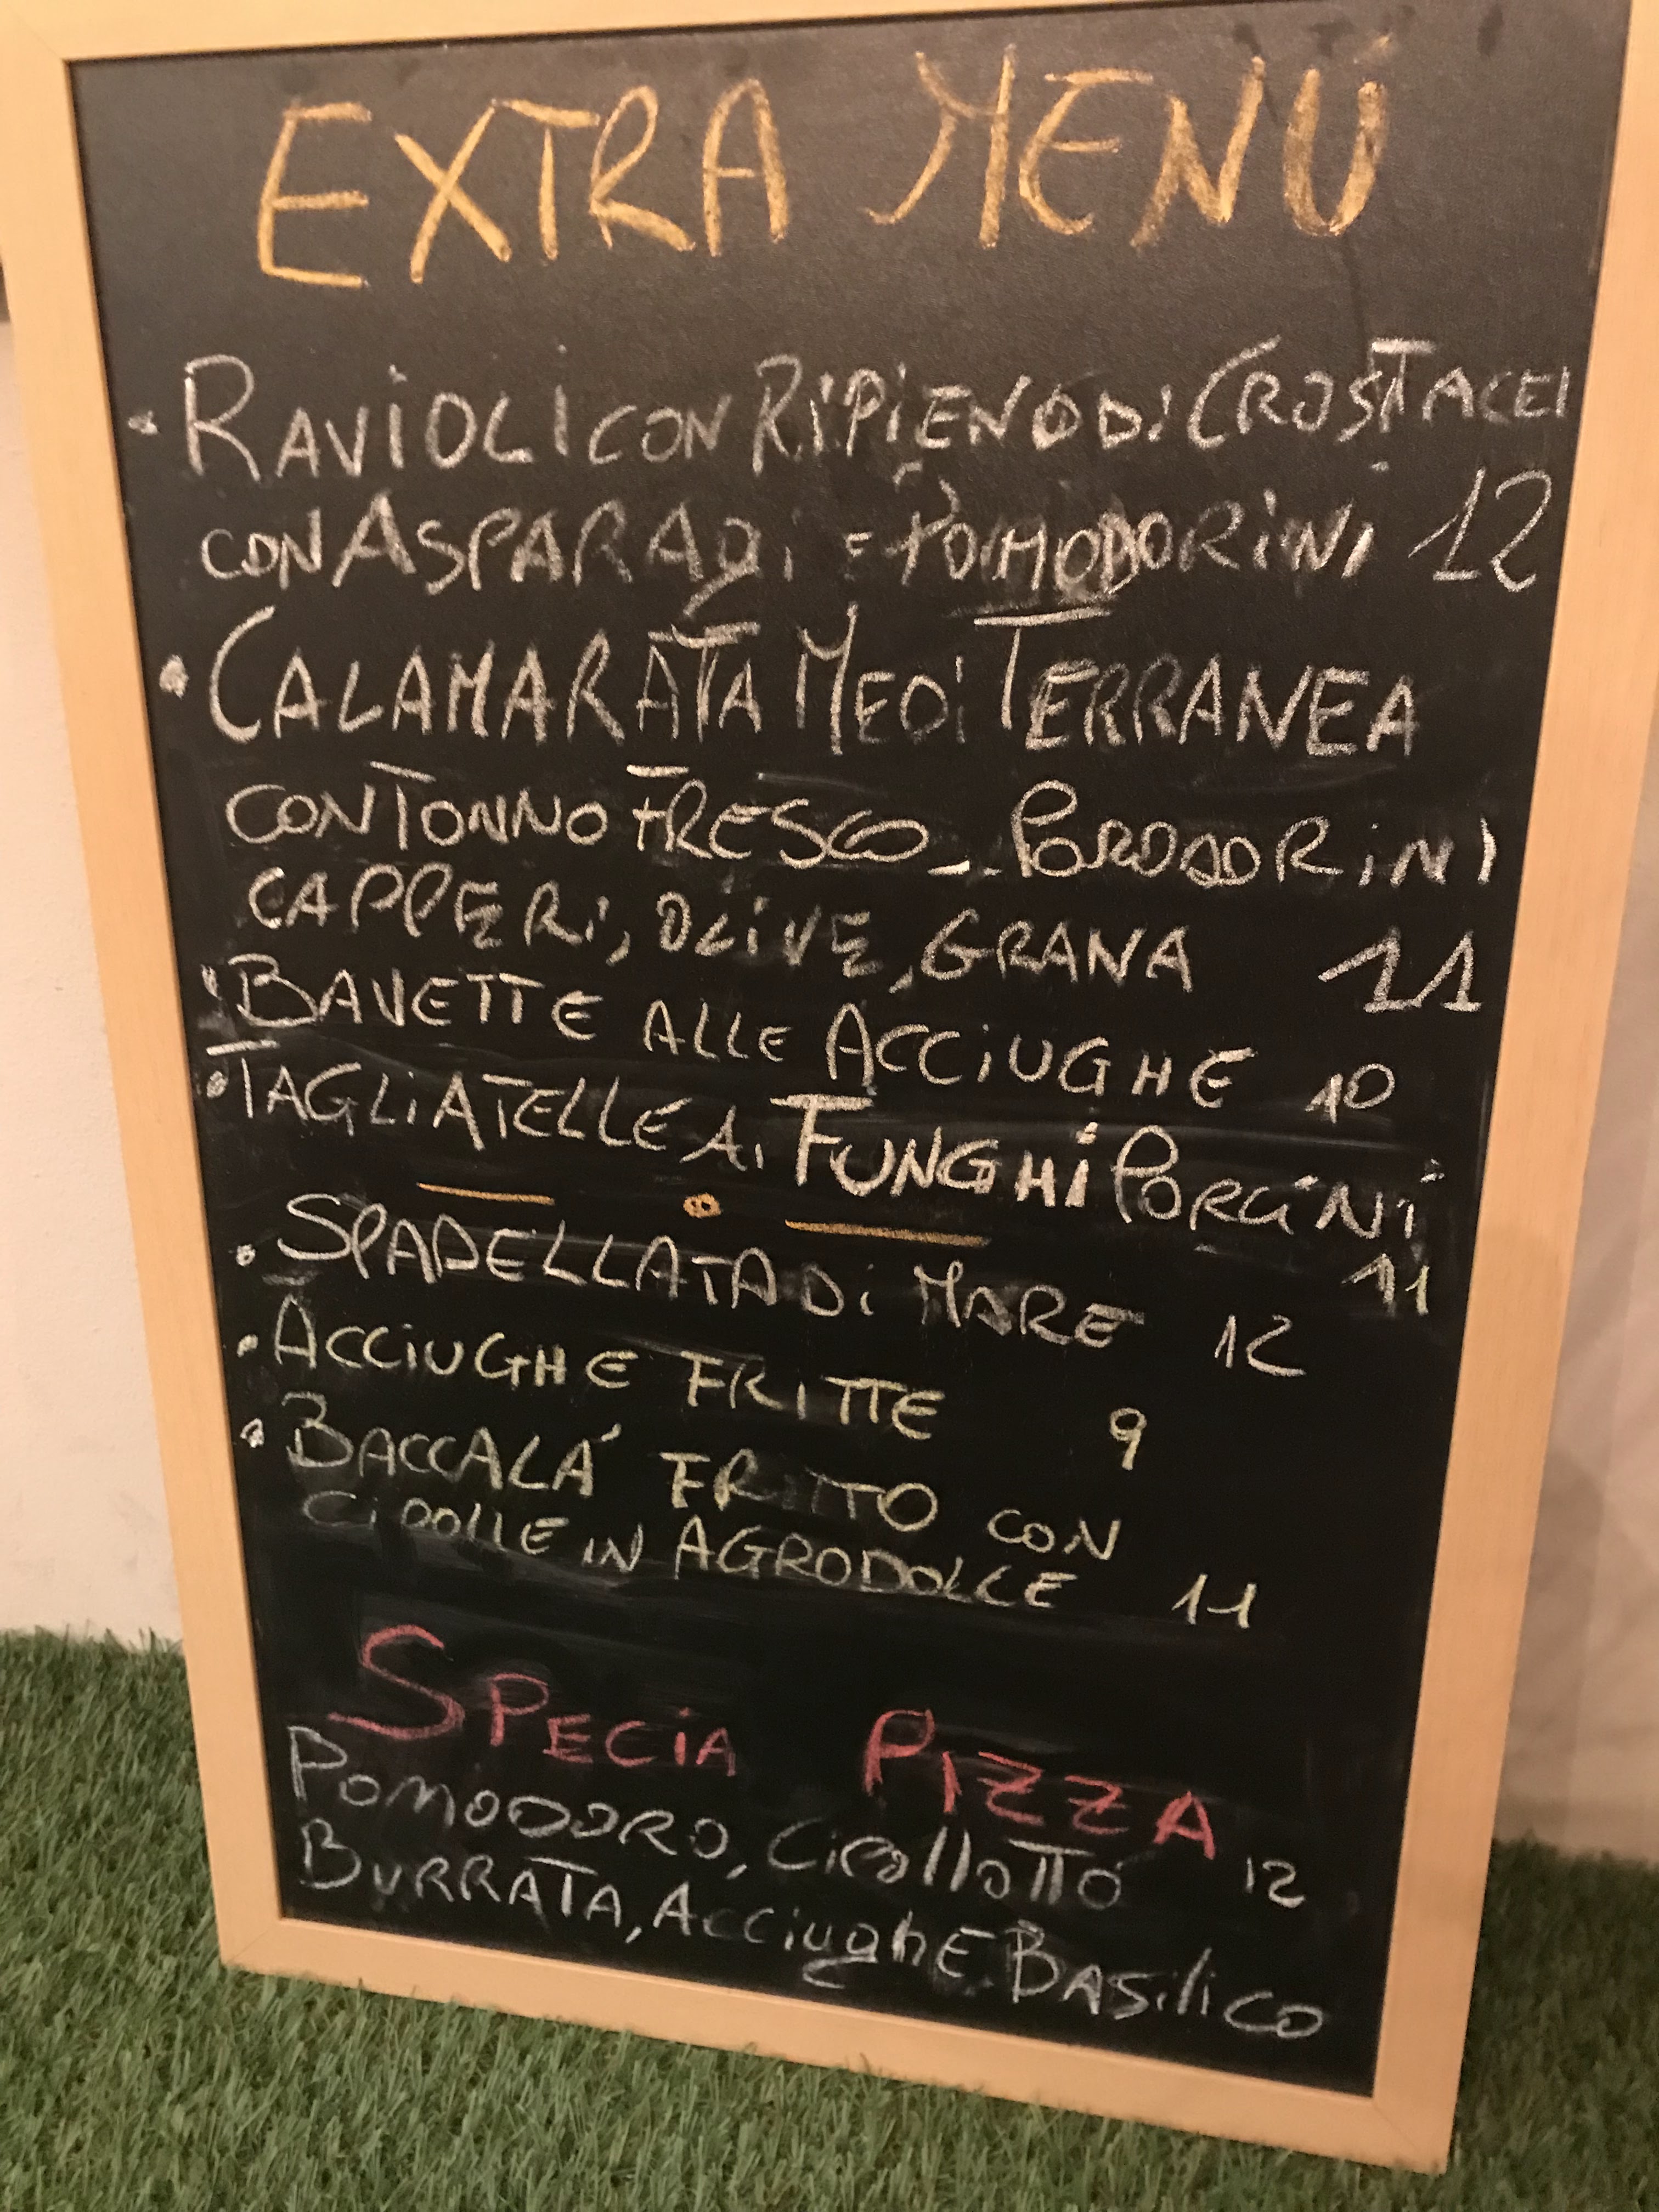 EXTRA MENÚ
• RAVIOLI CON RIPIENO DI CROSTACEI
CON ASPARAGI E POMODORINI 12
• CALAMARATA MEDITERRANEA
CON TONNO FRESCO POMODORINI
CAPPERI, OLIVE, GRANA 11
• BAVETTE ALLE ACCIUGHE 10
• TAGLIATELLE AI FUNGHI PORCINI
11
• SPADELLATA DI MARE 12
• ACCIUGHE FRITTE 9
• BACCALÁ FRITTO CON
CIPOLLE IN AGRODOLCE 11
SPECIA PIZZA
POMODORO, CIPOLLOTTO 12
BURRATA, ACCIUGHE BASILICO